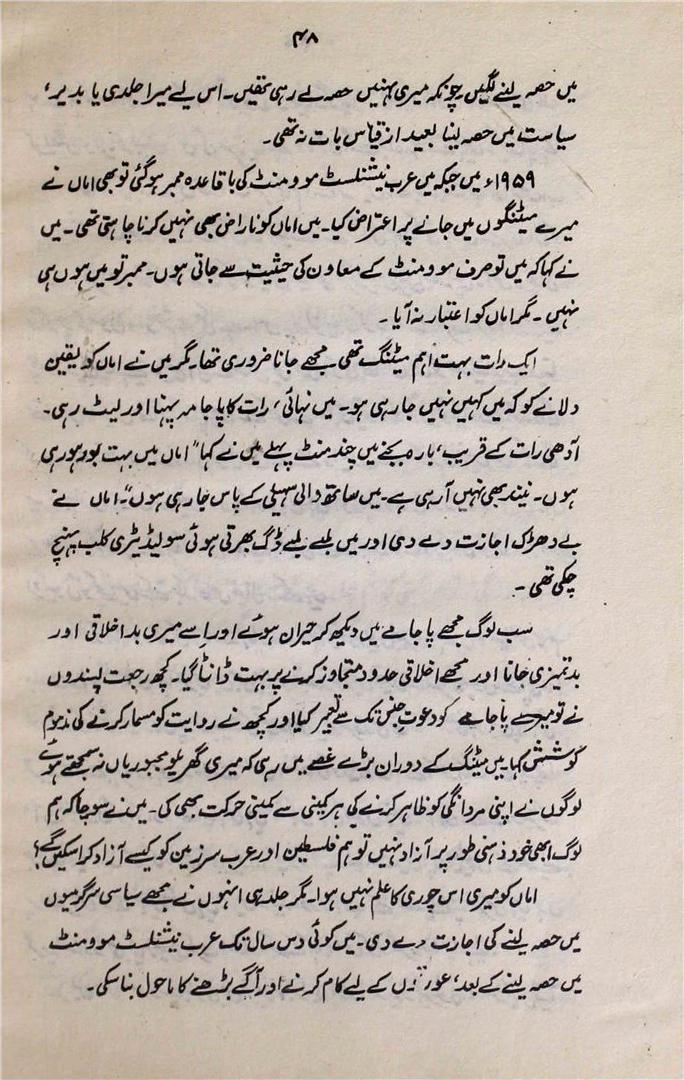 ۴۸
میں حصہ لینے لگیں چونکہ میری بہنیں حصہ لے رہی تھیں۔ اس لیے میرا جلدی یا بدیر،
سیاست میں حصہ لینا بعید از قیاس بات نہ تھی۔
۱۹۵۹ء میں جبکہ میں عرب نیشنلسٹ موومنٹ کی باقاعدہ ممبر ہوگئی تو بھی اماں نے
میرے میٹنگوں میں جانے پر اعتراض کیا۔ میں اماں کو ناراض بھی نہیں کرنا چاہتی تھی۔ میں
نے کہا کہ میں تو صرف موومنٹ کے معاون کی حیثیت سے جاتی ہوں۔ ممبر تو میں ہوں ہی
نہیں۔ مگر اماں کو اعتبار نہ آیا۔
ایک رات بہت اہم میٹنگ تھی۔ مجھے جانا ضروری تھا۔ مگر میں نے اماں کو یقین
دلانے کو کہ میں کہیں نہیں جا رہی ہو۔ میں نہائی، رات کا پاجامہ پہنا اور لیٹ رہی۔
آدھی رات کے قریب، بارہ بجنے میں چند منٹ پہلے میں نے کہا "اماں میں بہت بور ہو رہی
ہوں۔ نیند بھی نہیں آ رہی ہے۔ میں ساتھ والی سہیلی کے پاس جا رہی ہوں"۔ اماں نے
بے دھڑک اجازت دے دی اور میں لمبے لمبے ڈگ بھرتی ہوئی سولیڈیٹری کلب پہنچ
چکی تھی۔
سب لوگ مجھے پاجامے میں دیکھ کر حیران ہوئے اور اسے میری بداخلاقی اور
بدتمیزی جانا اور مجھے اخلاقی حدود متجاوز کرنے پر بہت ڈانٹا گیا۔ کچھ رجعت پسندوں
نے تو میرے پاجامے کو دعوتِ جنس تک سے تعبیر کیا اور کچھ نے روایت کو مسمار کرنے کی مذموم
کوشش کہا۔ میں میٹنگ کے دوران بڑے غصے میں رہی کہ میری گھریلو مجبوریاں نہ سمجھتے ہوئے
لوگوں نے اپنی مردانگی کو ظاہر کرنے کی ہر کمینی سے کمینی حرکت بھی کی۔ میں نے سوچا کہ ہم
لوگ ابھی خود ذہنی طور پر آزاد نہیں تو ہم فلسطین اور عرب سرزمین کو کیسے آزاد کرا سکیں گے؟
اماں کو میری اس چوری کا علم نہیں ہوا۔ مگر جلد ہی انہوں نے مجھے سیاسی سرگرمیوں
میں حصہ لینے کی اجازت دے دی۔ میں کوئی دس سال تک عرب نیشنلسٹ موومنٹ
میں حصہ لینے کے بعد، عورتوں کے لیے کام کرنے اور آگے بڑھنے کا ماحول بنا سکی۔